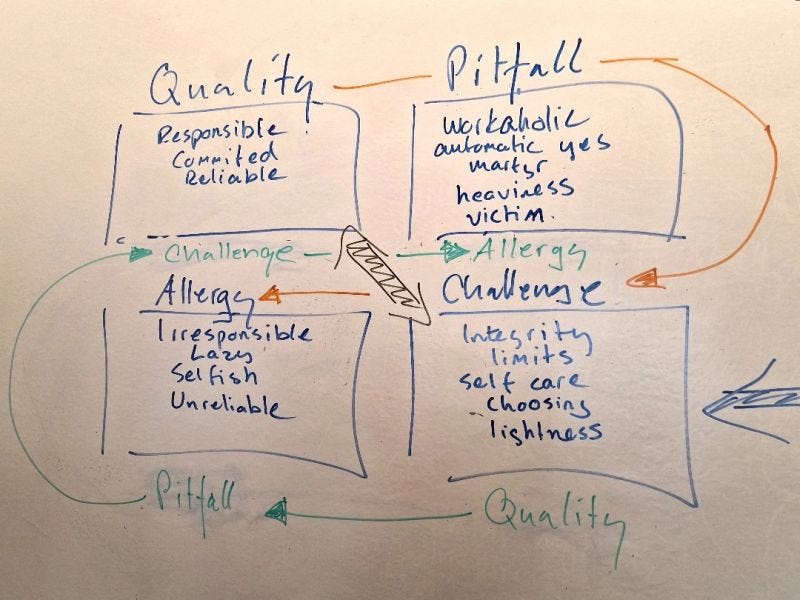 Quality
Responsible
Commited
Reliable
Pitfall
workaholic
automatic yes
martyr
heaviness
victim.
Challenge
Allergy
Allergy
Irresponsible
Lazy
Selfish
Unreliable
Challenge
Integrity
limits
self care
choosing
lightness
Pitfall
Quality